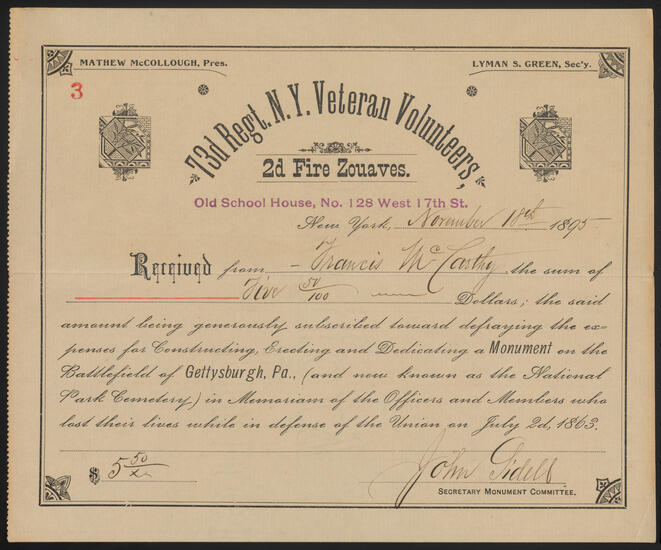 MATHEW McCOLLOUGH, Pres.
LYMAN S. GREEN, Sec'y.
3
73d Regt. N. Y. Veteran Volunteers,
2d Fire Zouaves.
Old School House, No. 128 West 17th St.
New York, November 18th 1895
Received from Francis McCarthy the sum of
Five 50/100 Dollars; the said
amount being generously subscribed toward defraying the ex-
penses for Constructing, Erecting and Dedicating a Monument on the
Battlefield of Gettysburgh, Pa., (and now known as the National
Park Cemetery) in Memoriam of the Officers and Members who
lost their lives while in defense of the Union on July 2d, 1863.
$ 5 50/xx
John Sidell
SECRETARY MONUMENT COMMITTEE.